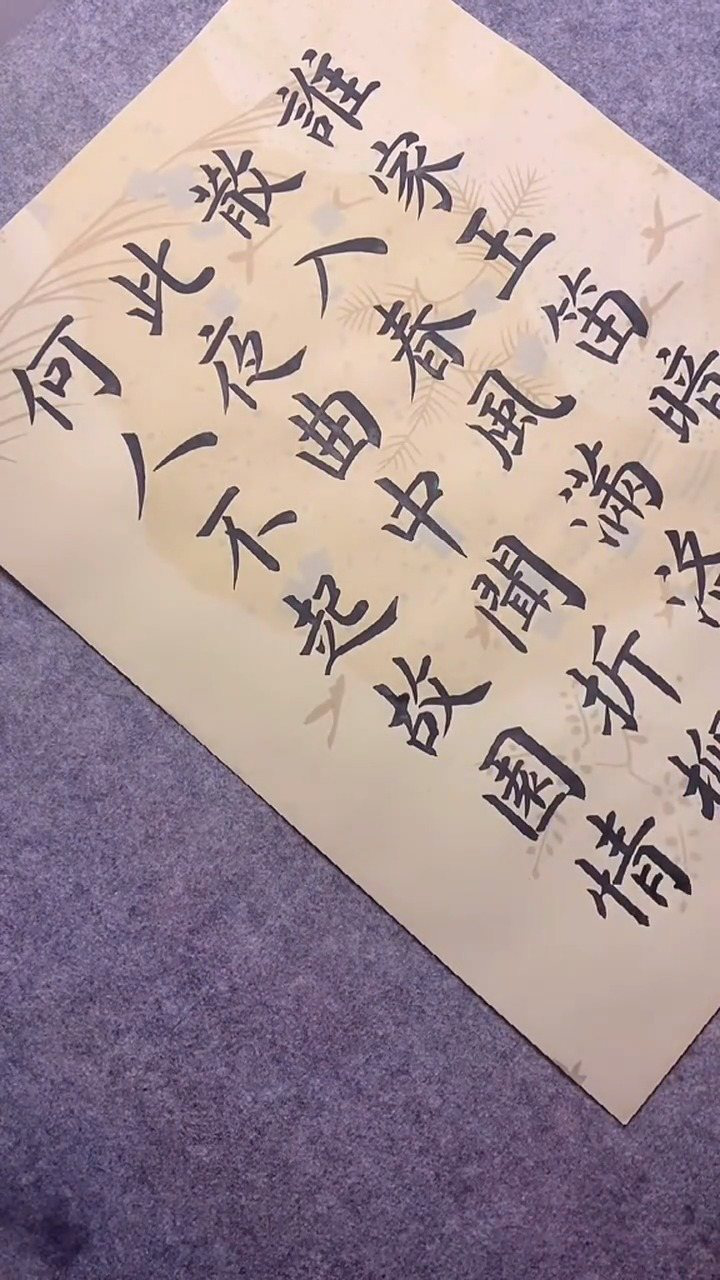 誰家玉笛暗
散入春風滿洛
此夜曲中聞折柳
何人不起故園情